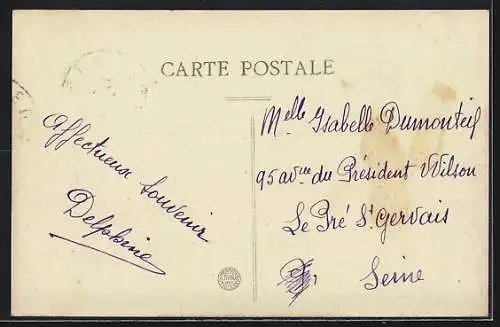 CARTE POSTALE
Affectueux Souvenir
Delphine
Melle Isabelle Dumonteil
95 avue du Président Wilson
Le Pré St Gervais
Seine